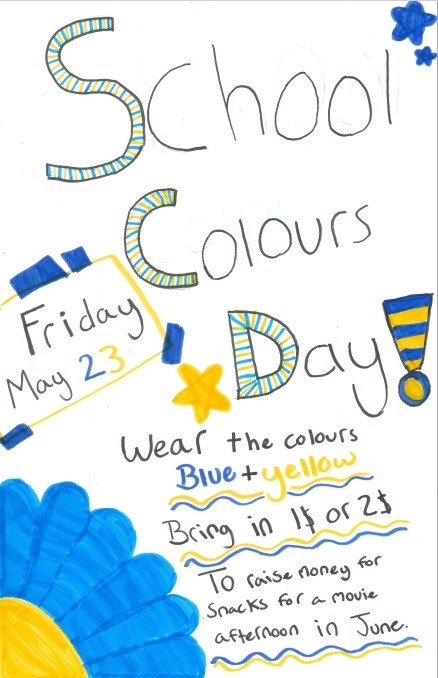 School
Colours
Day!
Friday
May 23
Wear the colours
Blue + yellow
Bring in 1$ or 2$
To raise money for
snacks for a movie
afternoon in June.